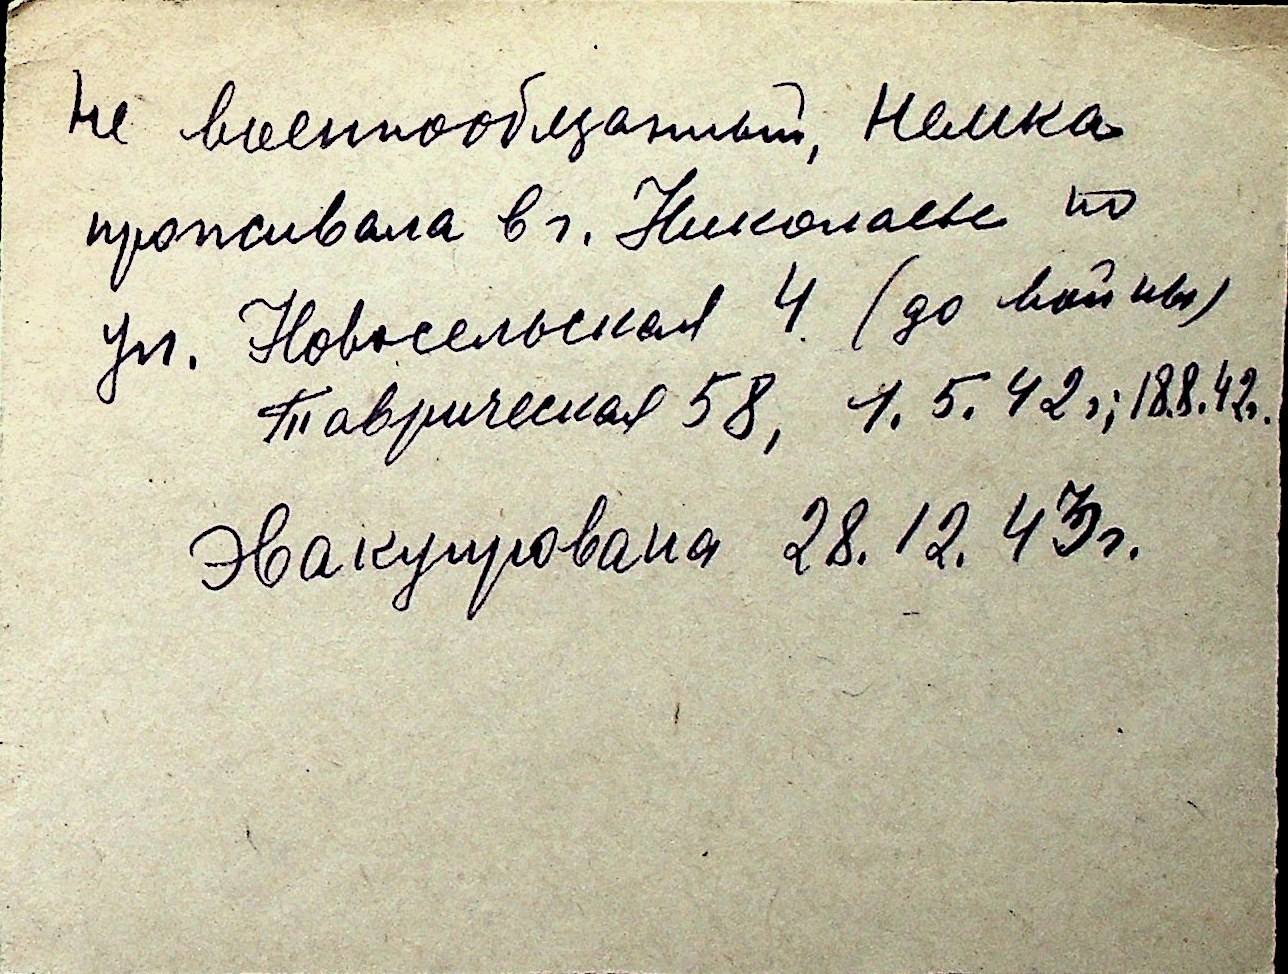 Не военнообязанный, Немка
проживала в г. Николаеве по
ул. Новосельская 4 (до войны)
Таврическая 58, 1.5.42г; 18.8.42г.
Эвакуирована 28.12.43г.